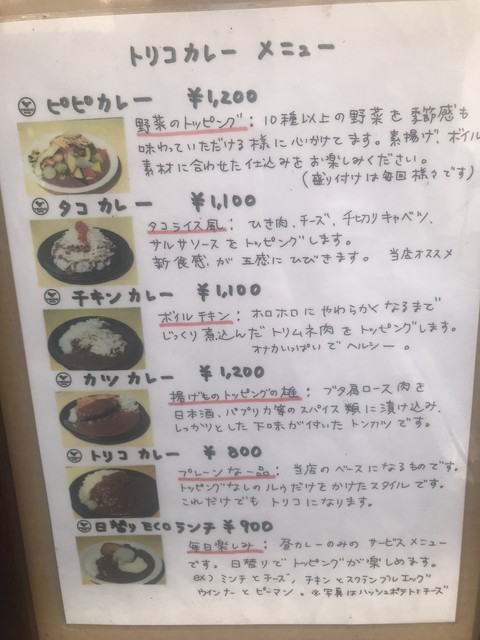 トリコカレー メニュー
ピピカレー ¥1,200
野菜のトッピング：10種以上の野菜を季節感も
味わっていただける様に心がけてます。素揚げ、ボイル
素材に合わせた仕込みをお楽しみください。
(盛り付けは毎回様々です)
タコカレー ¥1,100
タコライス風：ひき肉、チーズ、千切りキャベツ、
サルサソースをトッピングします。
新食感が五感にひびきます。 当店オススメ
チキンカレー ¥1,100
ボイルチキン：ホロホロにやわらかくなるまで
じっくり煮込んだトリムネ肉をトッピングします。
オナカいっぱいでヘルシー。
カツカレー ¥1,200
揚げものトッピングの雄：ブタ肩ロース肉を
日本酒、パプリカ等のスパイス類に漬け込み、
しっかりとした下味が付いたトンカツです。
トリコカレー ¥800
プレーンな一品：当店のベースになるものです。
トッピングなしのルウだけをかけたスタイルです。
これだけでもトリコになります。
日替りECOランチ ¥900
毎日楽しみ：昼カレーのみのサービスメニュー
です。日替りでトッピングが楽しめます。
ex) ミンチとチーズ、チキンとスクランブルエッグ
ウインナーとピーマン。※写真はハッシュポテトとチーズ